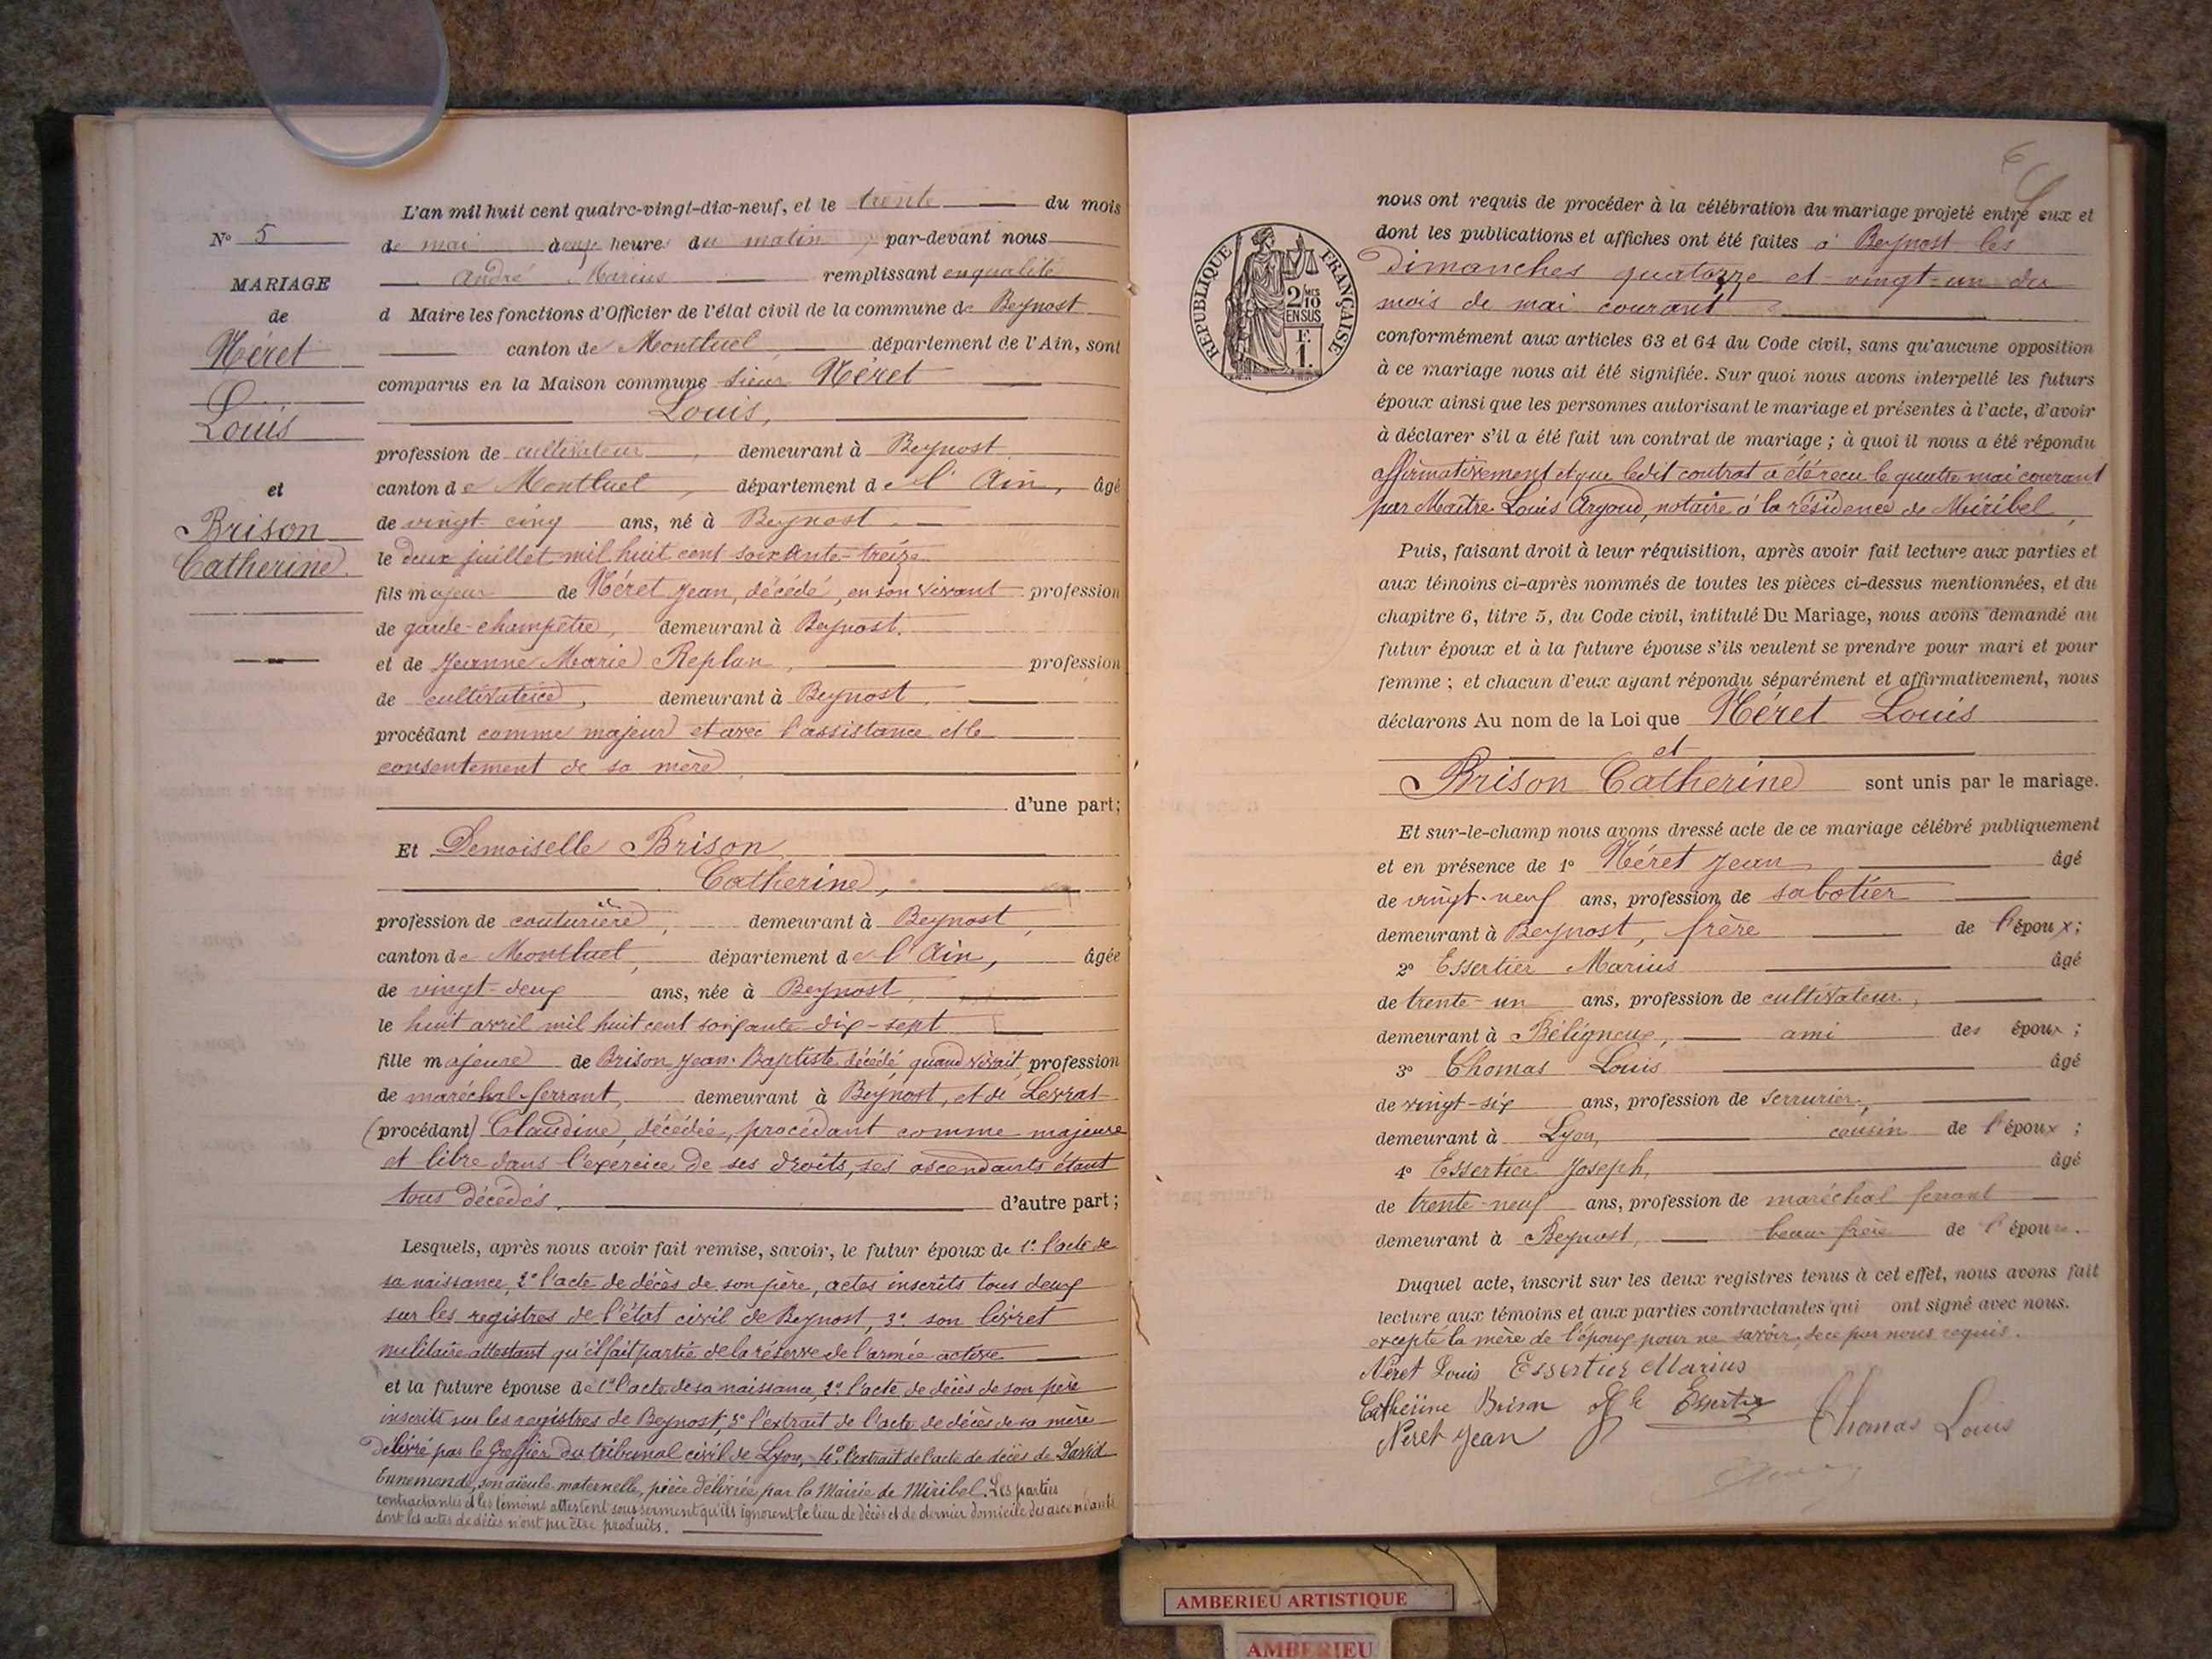 L'an mil huit cent quatre-vingt-dix-neuf, et le trente du mois
de mai à onze heures du matin, par-devant nous
André Marius remplissant en qualité
d Maire les fonctions d'Officier de l'état civil de la commune de Beynost
canton de Montluel, département de l'Ain, sont
comparus en la Maison commune sieur Néret
Louis,
profession de cultivateur, demeurant à Beynost
canton de Montluel, département de l'Ain, âgé
de vingt-cinq ans, né à Beynost
le deux juillet mil huit cent soixante-treize
fils majeur de Néret Jean, décédé, en son vivant profession
de garde-champêtre, demeurant à Beynost,
et de Jeanne Marie Replan, profession
de cultivatrice, demeurant à Beynost,
procédant comme majeur et avec l'assistance et le
consentement de sa mère
d'une part;
Et Demoiselle Brison
Catherine,
profession de couturière, demeurant à Beynost,
canton de Montluel, département de l'Ain, âgée
de vingt-deux ans, née à Beynost,
le huit avril mil huit cent soixante dix-sept
fille majeure de Brison Jean-Baptiste décédé, quand vivait, profession
de maréchal-ferrant, demeurant à Beynost, et de Levrat
(procédant) Claudine, décédée, procédant comme majeure
et libre dans l'exercice de ses droits, ses ascendants étant
tous décédés, d'autre part;
Lesquels, après nous avoir fait remise, savoir, le futur époux de 1° l'acte de
sa naissance, 2° l'acte de décès de son père, actes inscrits tous deux
sur les registres de l'état civil de Beynost, 3° son livret
militaire attestant qu'il fait partie de la réserve de l'armée active
et la future épouse de 1° l'acte de sa naissance, 2° l'acte de décès de son père
inscrits sur les registres de Beynost, 3° l'extrait de l'acte de décès de sa mère
délivré par le Greffier du tribunal civil de Lyon, 4° l'extrait de l'acte de décès de David
Ennemonde, son aïeule maternelle, pièce délivrée par la Mairie de Miribel. Les parties
contractantes et les témoins attestent sous serment qu'ils ignorent le lieu de décès et de dernier domicile des ascendants
dont les actes de décès n'ont pu être produits.
N° 5
MARIAGE
de
Néret
Louis
et
Brison
Catherine
6
nous ont requis de procéder à la célébration du mariage projeté entre eux et
dont les publications et affiches ont été faites à Beynost les
dimanches quatorze et vingt-un du
mois de mai courant
conformément aux articles 63 et 64 du Code civil, sans qu'aucune opposition
à ce mariage nous ait été signifiée. Sur quoi nous avons interpellé les futurs
époux ainsi que les personnes autorisant le mariage et présentes à l'acte, d'avoir
à déclarer s'il a été fait un contrat de mariage; à quoi il nous a été répondu
affirmativement et que ledit contrat a été reçu le quatre mai courant
par Maître Louis Argoud, notaire à la résidence de Miribel,
Puis, faisant droit à leur réquisition, après avoir fait lecture aux parties et
aux témoins ci-après nommés de toutes les pièces ci-dessus mentionnées, et du
chapitre 6, titre 5, du Code civil, intitulé Du Mariage, nous avons demandé au
futur époux et à la future épouse s'ils veulent se prendre pour mari et pour
femme; et chacun d'eux ayant répondu séparément et affirmativement, nous
déclarons Au nom de la Loi que Néret Louis
et
Brison Catherine sont unis par le mariage.
Et sur-le-champ nous avons dressé acte de ce mariage célébré publiquement
et en présence de 1° Néret Jean âgé
de vingt-neuf ans, profession de sabotier
demeurant à Beynost, frère de l'époux;
2° Essertier Marius âgé
de trente-un ans, profession de cultivateur,
demeurant à Béligneux, ami des époux;
3° Thomas Louis âgé
de vingt-six ans, profession de serrurier,
demeurant à Lyon, cousin de l'époux;
4° Essertier Joseph, âgé
de trente-neuf ans, profession de maréchal ferrant
demeurant à Beynost, beau frère de l'épouse.
Duquel acte, inscrit sur les deux registres tenus à cet effet, nous avons fait
lecture aux témoins et aux parties contractantes qui ont signé avec nous.
excepté la mère de l'époux pour ne savoir, de ce par nous requis.
Néret Louis Essertier Marius
Catherine Brison Essertier Thomas Louis
Néret Jean
RÉPUBLIQUE FRANÇAISE
2/10 MES
EN SUS
F.
1.
AMBERIEU ARTISTIQUE
AMBERIEU